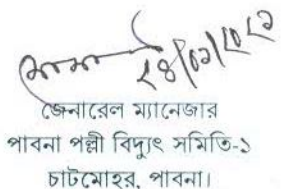 ২৪/০১/২০২১
জেনারেল ম্যানেজার
পাবনা পল্লী বিদ্যুৎ সমিতি-১
চাটমোহর, পাবনা।